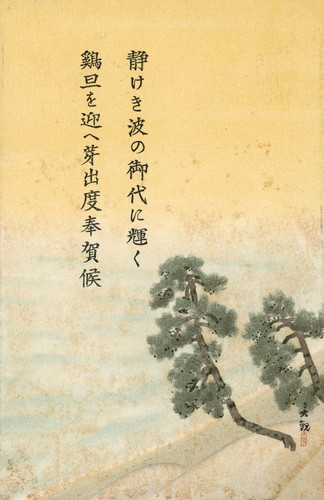 静けき波の御代に輝く
鷄旦を迎へ芽出度奉賀候
大観